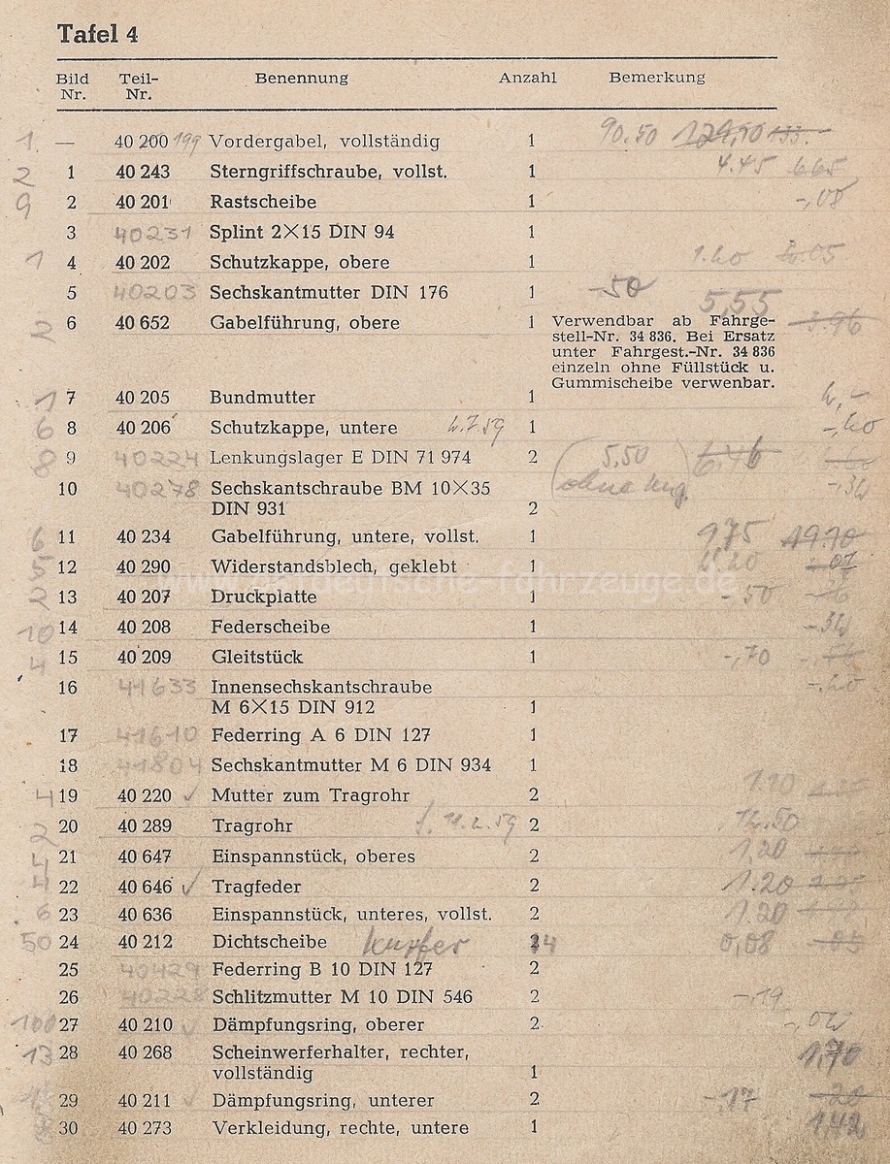 Tafel 4
Bild Nr. Teil-Nr. Benennung Anzahl Bemerkung
1. — 40 200 199 Vordergabel, vollständig 1 90.50 129,50 133.-
2 1 40 243 Sterngriffschraube, vollst. 1 4.45 6.65
9 2 40 201 Rastscheibe 1 -,08
3 40231 Splint 2×15 DIN 94 1
1 4 40 202 Schutzkappe, obere 1
5 40203 Sechskantmutter DIN 176 1 -50
5,55
2 6 40 652 Gabelführung, obere 1 Verwendbar ab Fahrge- 3.96
stell-Nr. 34 836. Bei Ersatz
unter Fahrgest.-Nr. 34 836
einzeln ohne Füllstück u.
Gummischeibe verwenbar.
1 7 40 205 Bundmutter 1
6 8 40 206 Schutzkappe, untere 1
8 9 40224 Lenkungslager E DIN 71 974 2 5,50
10 40278 Sechskantschraube BM 10×35 ohne
DIN 931 2
6 11 40 234 Gabelführung, untere, vollst. 1 19.70
5 12 40 290 Widerstandsblech, geklebt 1
www.ostdeutsche-fahrzeuge.de
2 13 40 207 Druckplatte 1 -.50
10 14 40 208 Federscheibe 1
4 15 40 209 Gleitstück 1 -,70
16 41633 Innensechskantschraube
M 6×15 DIN 912 1
17 41610 Federring A 6 DIN 127 1
18 41804 Sechskantmutter M 6 DIN 934 1
4 19 40 220 ✓ Mutter zum Tragrohr 2 1.10
2 20 40 289 Tragrohr 11.2.59 2
4 21 40 647 Einspannstück, oberes 2 1,20
4 22 40 646 ✓ Tragfeder 2 1.20
6 23 40 636 Einspannstück, unteres, vollst. 2 1.20
50 24 40 212 Dichtscheibe Kupfer 4 0,08 -05
25 40429 Federring B 10 DIN 127 2
26 40228 Schlitzmutter M 10 DIN 546 2 -.19
100 27 40 210 Dämpfungsring, oberer 2
13 28 40 268 Scheinwerferhalter, rechter, 1,70
vollständig 1
29 40 211 Dämpfungsring, unterer 2 -,17 -20
30 40 273 Verkleidung, rechte, untere 1 1,42